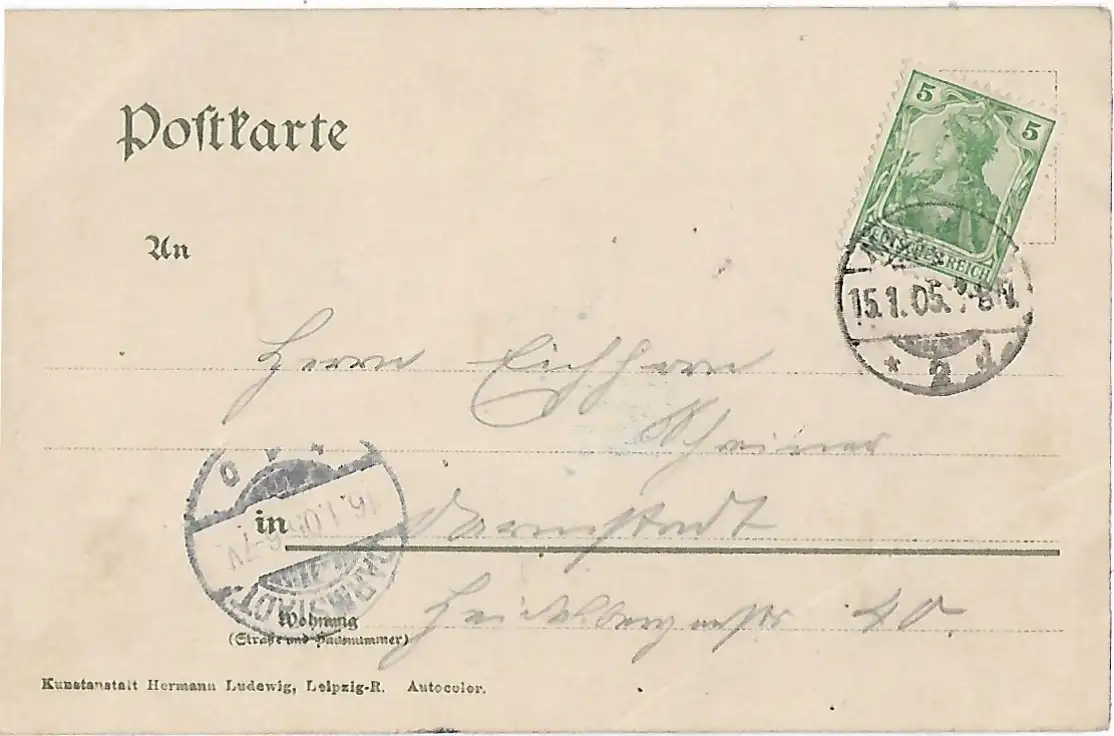 Postkarte
5 5
DEUTSCHES REICH
An
15.1.05. 7-8 N.
* 2 d.
Herrn Eichhorn
in Darmstadt
16.1.05 6-7 V.
DARMSTADT
Heidelbergerstr 40.
Wohnung
(Straße und Hausnummer)
Kunstanstalt Hermann Ludewig, Leipzig-R. Autocolor.